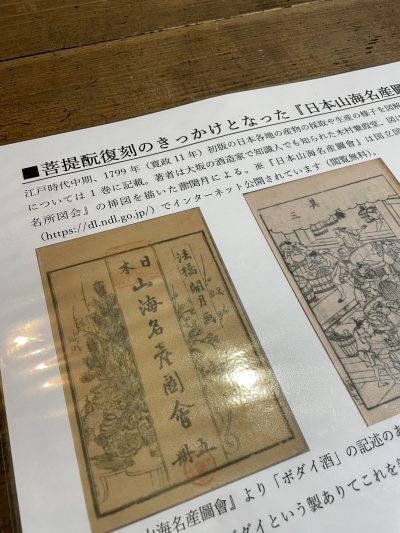 ■菩提酛復刻のきっかけとなった『日本山海名産圖
江戸時代中期、1799年（寛政11年）初版の日本各地の産物の採取や生産の様子を図解
については1巻に記載。著者は大坂の酒造家で知識人でも知られた木村蒹葭堂。図は
名所図会』の挿図を描いた蔀関月による。※『日本山海名産圖會』は国立国
（https://dl.ndl.go.jp/）でインターネット公開されています（閲覧無料）。
法橋關月画
日本
山海名産圖會
五冊
山海名産圖會』より「ボダイ酒」の記述のあ
ダイという製ありてこれを